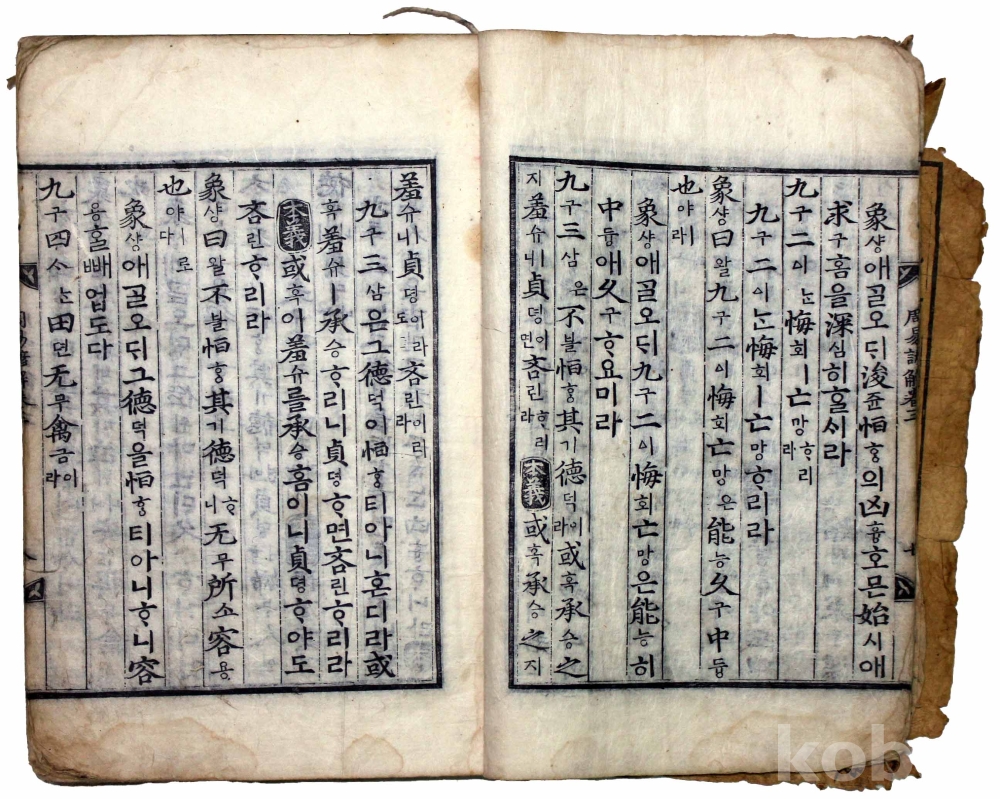 周易諺解卷三
象샹애ᄀᆞᆯ오ᄃᆡ浚쥰恒ᄒᆞᆼ의凶흉호ᄆᆞᆫ始시애
求구홈을深심히ᄒᆞᆯᄉᆡ라
九구二이ᄂᆞᆫ悔회ㅣ亡망ᄒᆞ리라
九구二이ᄂᆞᆫ悔회ㅣ亡망ᄒᆞ리라
象샹曰왈九구二이悔회亡망은能능久구中듕
也야ㅣ라
象샹애ᄀᆞᆯ오ᄃᆡ九구二이悔회亡망은能능히
中듕애久구ᄒᆞ요미라
九구三삼은不블恒ᄒᆞᆼ其기德덕이라或혹承승之
지羞슈ㅣ니貞뎡이면吝린ᄒᆞ리라本義或혹承승之지
羞슈ㅣ니貞뎡이라도吝린이리라
九구三삼은그德덕이恒ᄒᆞᆼ티아니혼디라或
혹羞슈ㅣ承승ᄒᆞ리니貞뎡ᄒᆞ면吝린ᄒᆞ리라
本義或혹이羞슈를承승홈이니貞뎡ᄒᆞ야도
吝린ᄒᆞ리라
象샹曰왈不블恒ᄒᆞᆼ其기德덕ᄒᆞ니无무所소容용
也야ㅣ로다
象샹애ᄀᆞᆯ오ᄃᆡ그德덕을恒ᄒᆞᆼ티아니ᄒᆞ니容
용홀빼업도다
九구四ᄉᆞᄂᆞᆫ田뎐无무禽금이라
kob